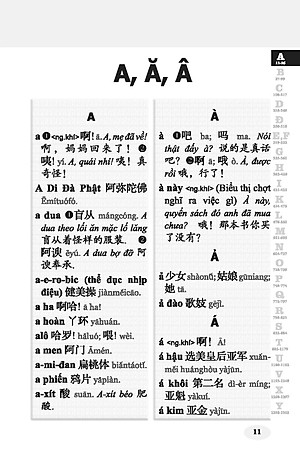 A, Ă, Â
A
a ❶<ng.khí> 啊! ā. A, mẹ đã về!
啊，妈妈回来了！ ❷
咦! yí. A, quái nhỉ! 咦！真
奇怪！
A Di Đà Phật 阿弥陀佛
Ēmítuófó.
a dua ❶盲从 mángcóng. A
dua theo lối ăn mặc lố lăng
盲从着怪样的服装。 ❷
阿谀 ēyú. A dua bợ đỡ 阿
谀奉承.
a-e-ro-bic (thể dục nhịp
điệu) 健美操 jiànměicāo.
a ha 啊哈! ā ha!
a hoàn 丫环 yāhuán.
alô 哈罗! hāluó; 喂! wèi.
a men 阿门 Āmén.
a-mi-đan 扁桃体 biǎntáotǐ.
a phiến 鸦片 yāpiàn.
a-xít 酸 suān. A-xít béo 肥
酸.
À
à ❶吧 ba; 吗 ma. Nói
thật đấy à? 说的是真话
吧？ ❷啊 ā; 哦 ò. À, được
rồi 哦，行了！
à này <ng.khí> (Biểu thị chợt
nghĩ ra việc gì) À này,
quyển sách đó anh đã mua
chưa? 哦！那本书你买
了没有？
Ả
ả 少女 shàonǚ; 姑娘 gūniang;
她 tā.
ả đào 歌妓 gējì.
Á
á <ng.khí> 啊! ā!
á hậu 选美皇后亚军 xuǎn-
měi huánghòu yàjūn.
á khôi 第二名 dì-èr míng;
亚魁 yàkuí.
á kim 亚金 yàjīn.
11
A
B
C
D
Đ
E,F
G
H
I
K
L
M
N
O
P
Q
R
S
T
U
V
X
Y